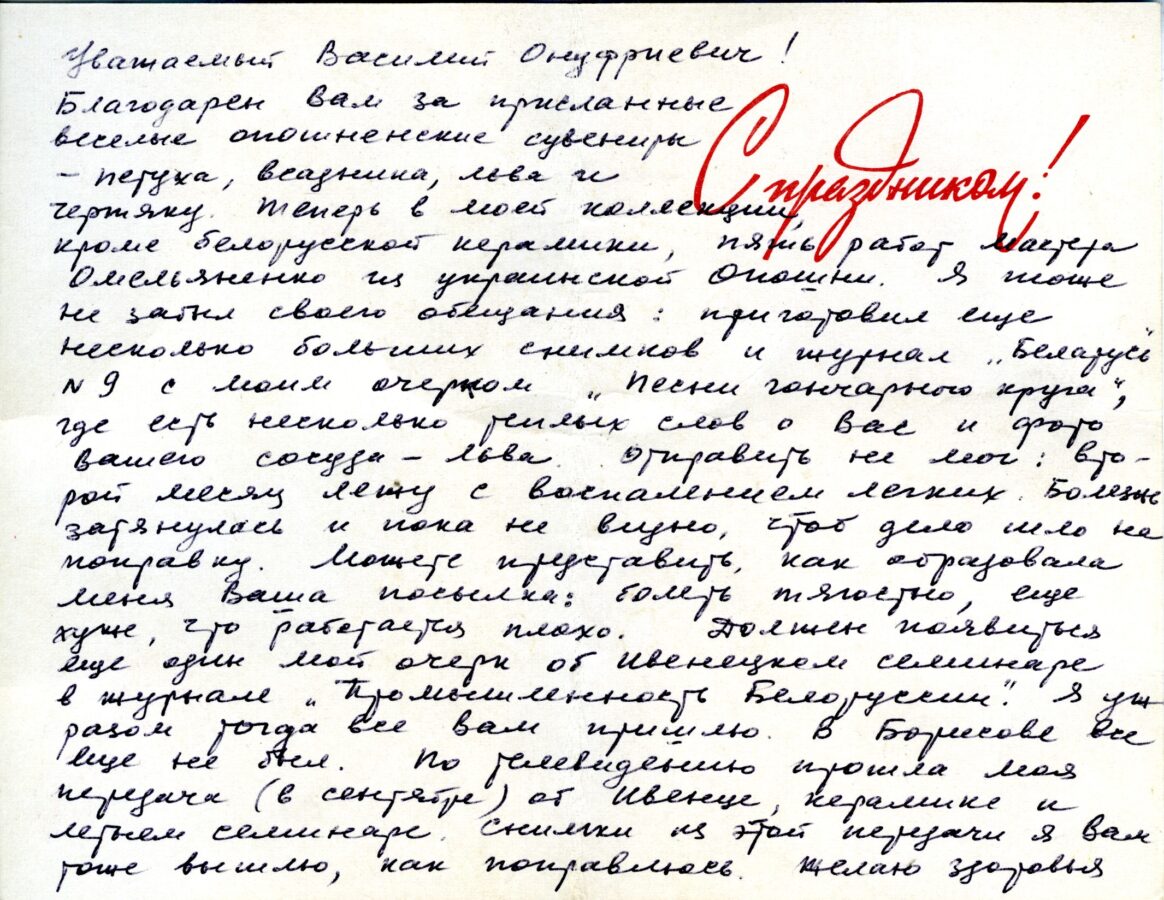 Уважаемый Василий Онуфриевич!
Благодарен Вам за присланные
веселые опошненские сувениры
- петуха, всадника, льва и
С праздником!
чертяку. Теперь в моей коллекции,
кроме белорусской керамики, пять работ мастера
Омельяненко из украинской Опошни. Я тоже
не забыл своего обещания: приготовил еще
несколько больших снимков и журнал „Беларусь"
N 9 с моим очерком „Песни гончарного круга",
где есть несколько теплых слов о Вас и фото
Вашего сосуда - льва. Отправить не мог: вто-
рой месяц лежу с воспалением легких. Болезнь
затянулась и пока не видно, чтоб дело шло на
поправку. Можете представить, как обрадовала
меня Ваша посылка: болеть тягостно, еще
хуже, что работается плохо. Должен появиться
еще один мой очерк об ивенецком семинаре
в журнале „Промышленность Белоруссии". Я уж
разом тогда все Вам пришлю. В Борисове все
еще не был. По телевидению прошла моя
передача (в сентябре) об Ивенце, керамике и
летнем семинаре. Снимки из этой передачи я Вам
тоже вышлю, как поправлюсь. Желаю здоровья